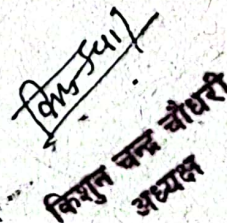 किशुन चन्द्र चौधरी
अध्यक्ष